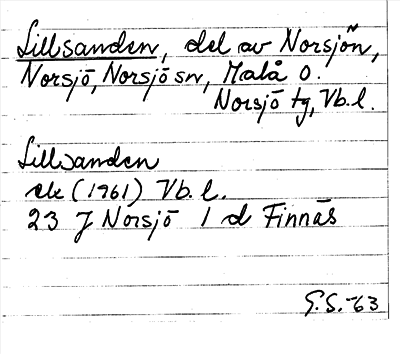 Lillsanden, del av Norsjön,
Norsjö, Norsjö sn, Malå o.
Norsjö tg, Vb.l.
Lillsanden
ek (1961) Vb.l.
23 J Norsjö 1 d Finnäs
G.S.-63